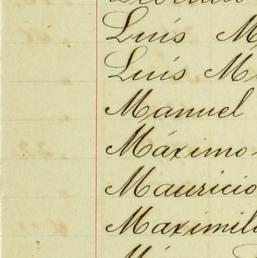 Luís M
Luís M
Manuel
Máximo
Mauricio
Maximil